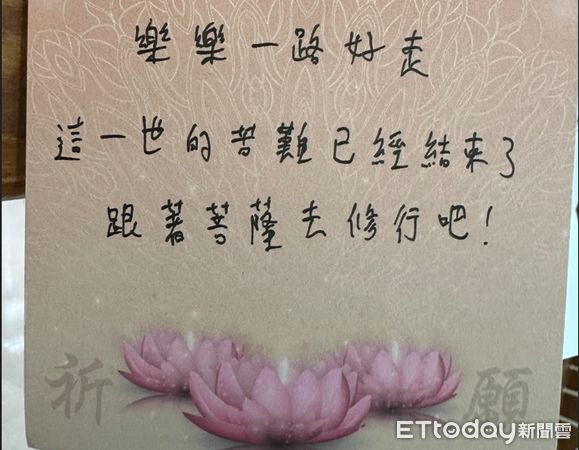 樂樂一路好走
這一世的苦難已經結束了
跟著菩薩去修行吧！
祈 願
ETtoday新聞雲